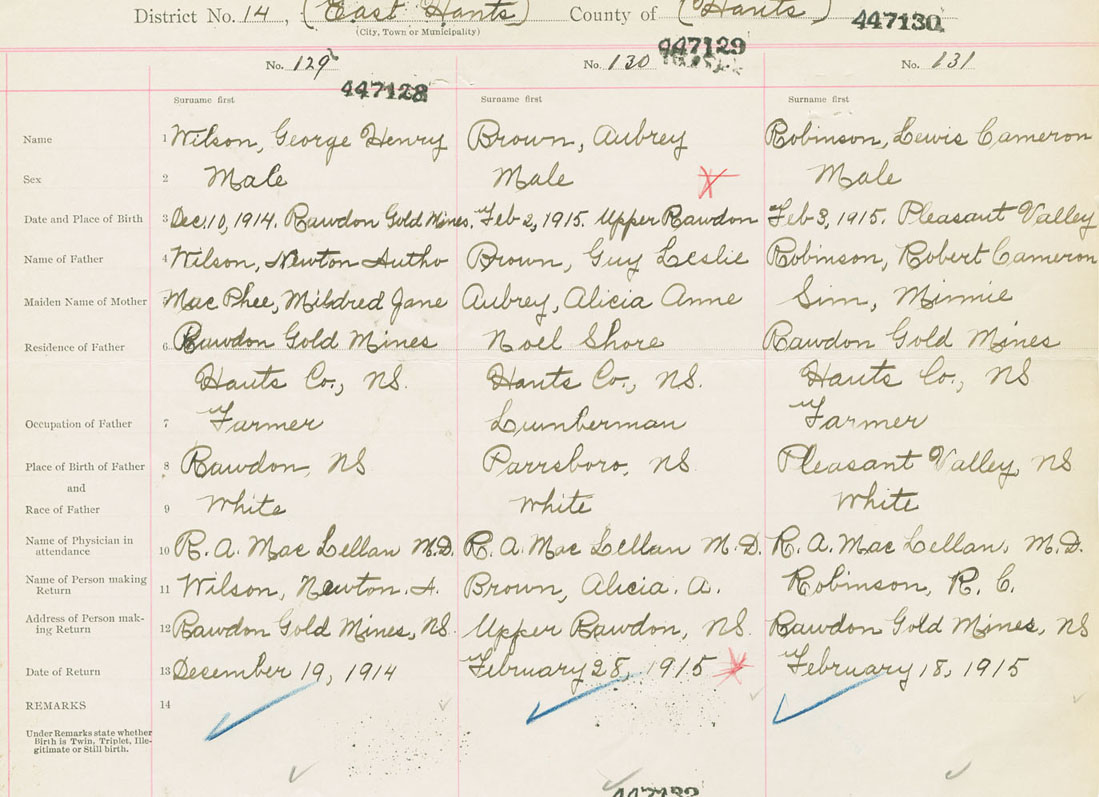 District No. 14, (East Hants) County of (Hants) 447130
(City, Town or Municipality)
447129
No. 129 No. 130 No. 131
447128
Surname first Surname first Surname first
Name 1 Wilson, George Henry Brown, Aubrey Robinson, Lewis Cameron
Sex 2 Male Male Male
Date and Place of Birth 3 Dec. 10, 1914. Rawdon Gold Mines. Feb 2, 1915. Upper Rawdon Feb 3, 1915. Pleasant Valley
Name of Father 4 Wilson, Newton Autho Brown, Guy Leslie Robinson, Robert Cameron
Maiden Name of Mother Mac Phee, Mildred Jane Aubrey, Alicia Anne Sim, Minnie
Residence of Father 6 Rawdon Gold Mines Noel Shore Rawdon Gold Mines
Hants Co., NS. Hants Co., NS. Hants Co., NS
Occupation of Father 7 Farmer Lumberman Farmer
Place of Birth of Father 8 Rawdon, NS Parrsboro, NS Pleasant Valley, NS
and
Race of Father 9 White White White
Name of Physician in 10 R. A. Mac Lellan M.D. R. A. Mac Lellan M.D. R. A. Mac Lellan, M.D.
attendance
Name of Person making 11 Wilson, Newton. A. Brown, Alicia. A. Robinson, R. C.
Return
Address of Person mak- 12 Rawdon Gold Mines, NS. Upper Rawdon, NS. Rawdon Gold Mines, NS
ing Return
Date of Return 13 December 19, 1914 February 28, 1915 February 18, 1915
REMARKS 14
Under Remarks state whether
Birth is Twin, Triplet, Ille-
gitimate or Still birth.
447132